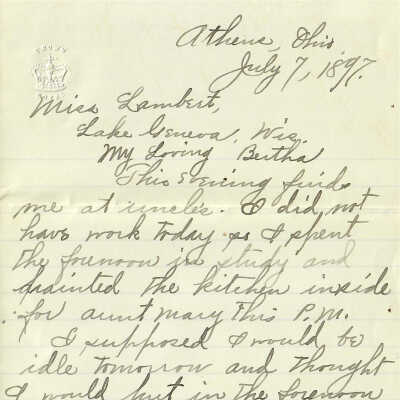 Athens, Ohio
July 7, 1897.
Miss Lambert,
Lake Geneva, Wis.
My Loving Bertha
This evening finds
me at uncle's. I did not
have work today so I spent
the forenoon in study and
painted the kitchen inside
for aunt Mary this P.M.
I supposed I would be
idle tomorrow and thought
I would put in the forenoon